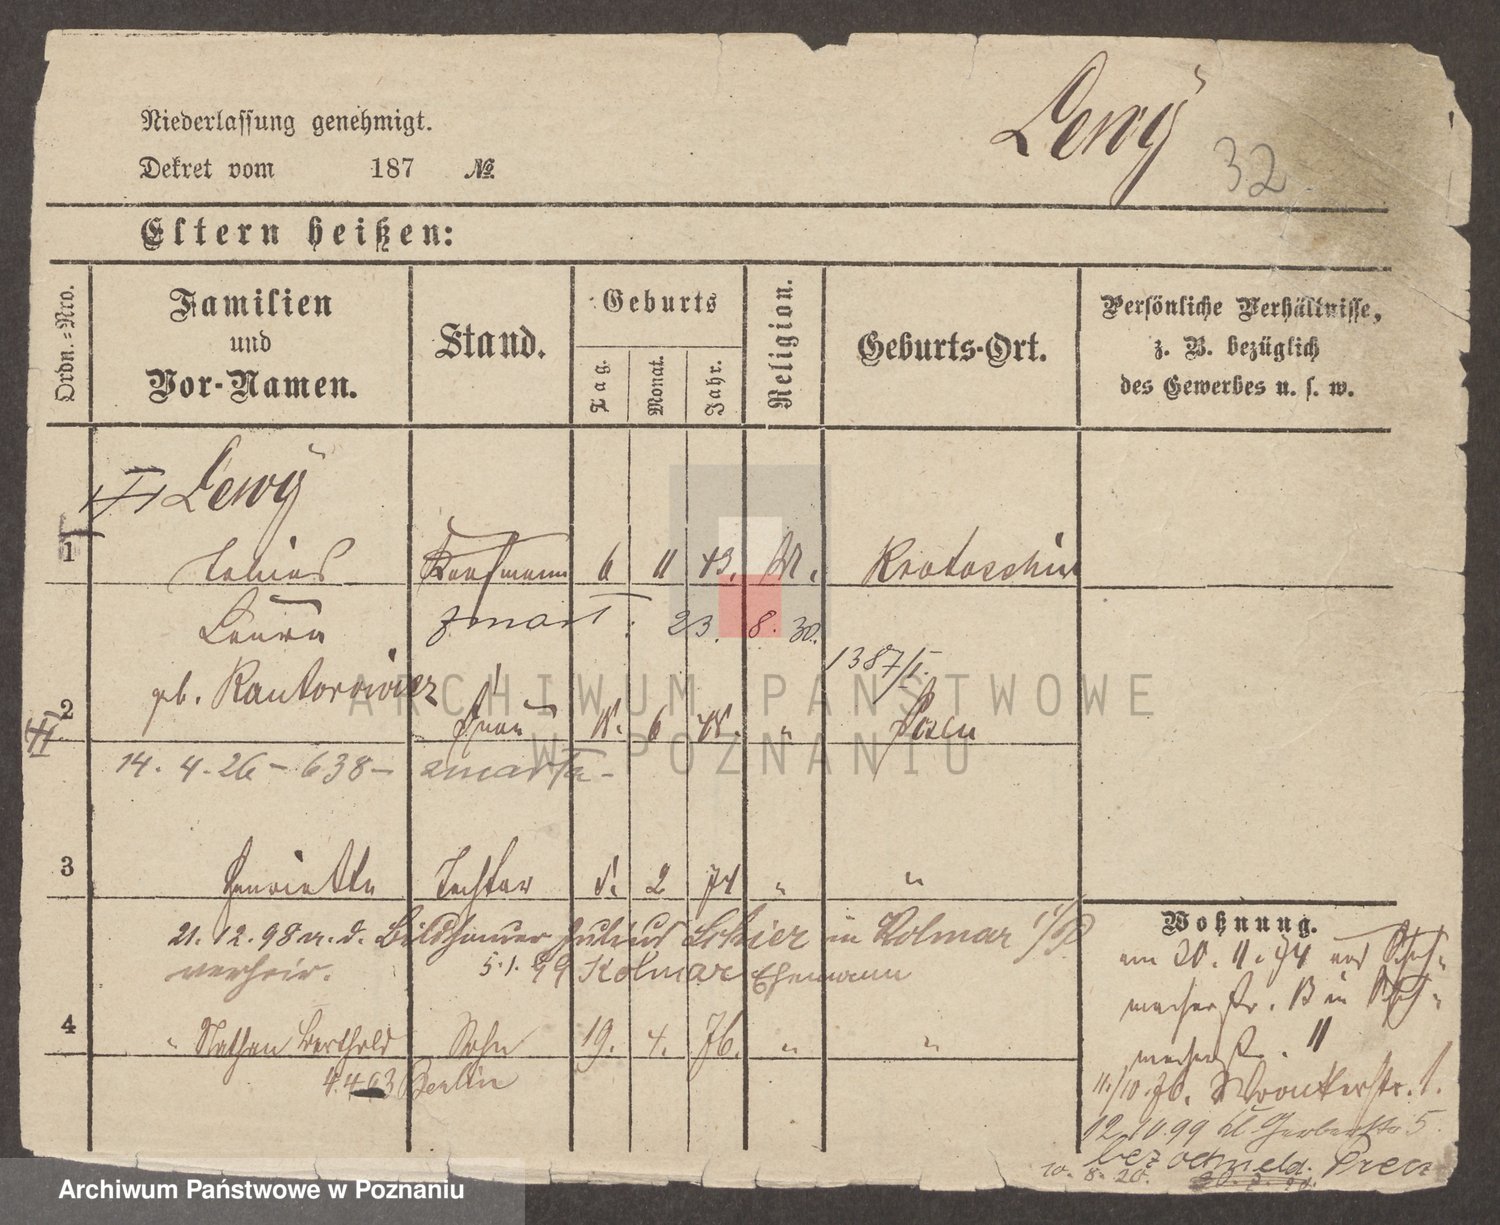 Niederlassung genehmigt.
Dekret vom 187 №
Lewy
32
Eltern heißen:
Ordn.-Nro.
Familien
und
Vor-Namen.
Stand.
Geburts
Tag.
Monat.
Jahr.
Religion.
Geburts-Ort.
Persönliche Verhältnisse,
z. B. bezüglich
des Gewerbes u. s. w.
Lewy
1 Tobias Kaufmann 6 11 43. M. Krotoschin
Laura zmarł: 23. 8. 30.
1387/I.
2 geb. Kantorowicz Frau 6 " Posen
14. 4. 26 - 638 - zmarła -
3 Henriette Tochter 2 74 " "
21. 12. 98 m. d. Bildhauer Julius in Kolmar i/P
verheir. 5. 1. 99 Kolmar Ehemann
4 " Nathan Berthold Sohn 19. 4. 76. " "
4. 4 03 Berlin
Wohnung.
am 20. 11. 74 von Schuh-
macherstr. 13 in Schuh-
macherstr. 11
11./10. 76. Wronkerstr. 1.
12. 10. 99 kl. Gerberstr 5.
10. 8. 20. bez odmeld.
ARCHIWUM PAŃSTWOWE
W POZNANIU
Archiwum Państwowe w Poznaniu